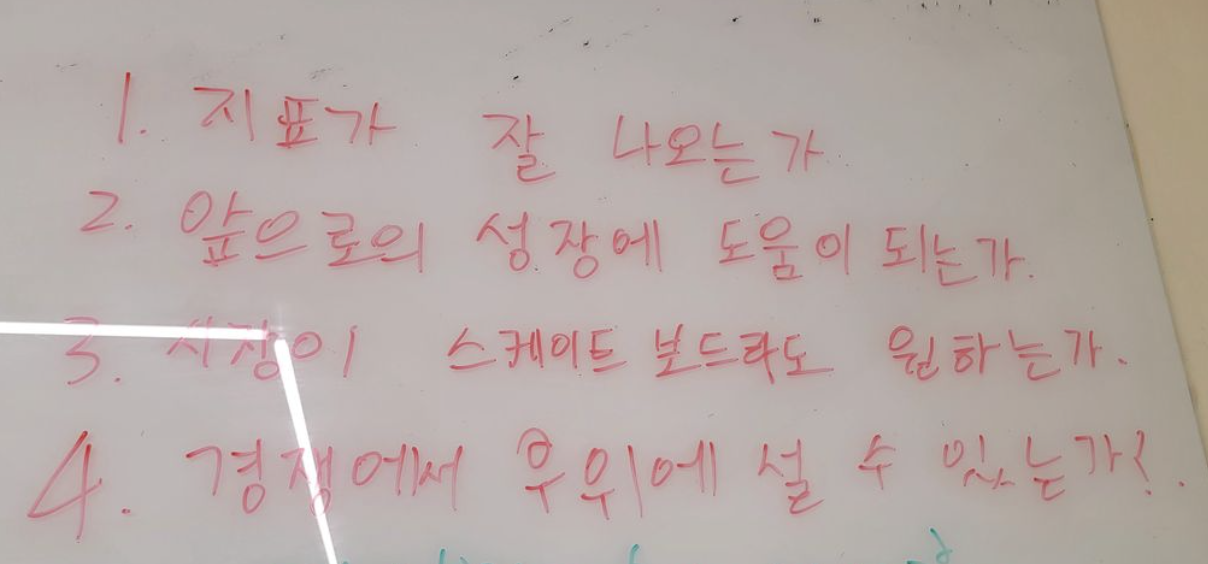 1. 지표가 잘 나오는가
2. 앞으로의 성장에 도움이 되는가.
3. 시장이 스케이트 보드라도 원하는가.
4. 경쟁에서 우위에 설 수 있는가?.